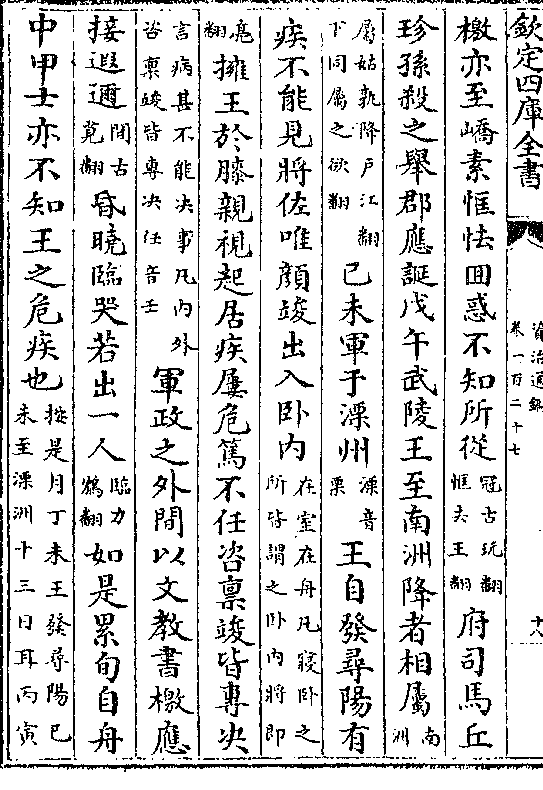 欽定四庫全書
資治通鑑
卷一百二十七
十八
檄亦至嶠素恇怯回惑不知所從冠古玩翻恇去王翻府司馬丘
珍孫殺之舉郡應誕戊午武陵王至南洲降者相屬南洲
屬姑孰降户江翻下同屬之欲翻己未軍于溧州溧音栗王自發尋陽有
疾不能見將佐唯顔竣出入卧内在室在舟凡寢卧之所皆謂之卧内將即
亮翻擁王於膝親視起居疾屢危篤不任咨禀竣皆專决
言病甚不能决事凡内外咨禀竣皆專决任音壬軍政之外間以文教書檄應
接遐邇間古莧翻昏曉臨哭若出一人臨力鴆翻如是累旬自舟
中甲士亦不知王之危疾也按是月丁未王發尋陽己未至溧洲十三日耳丙寅